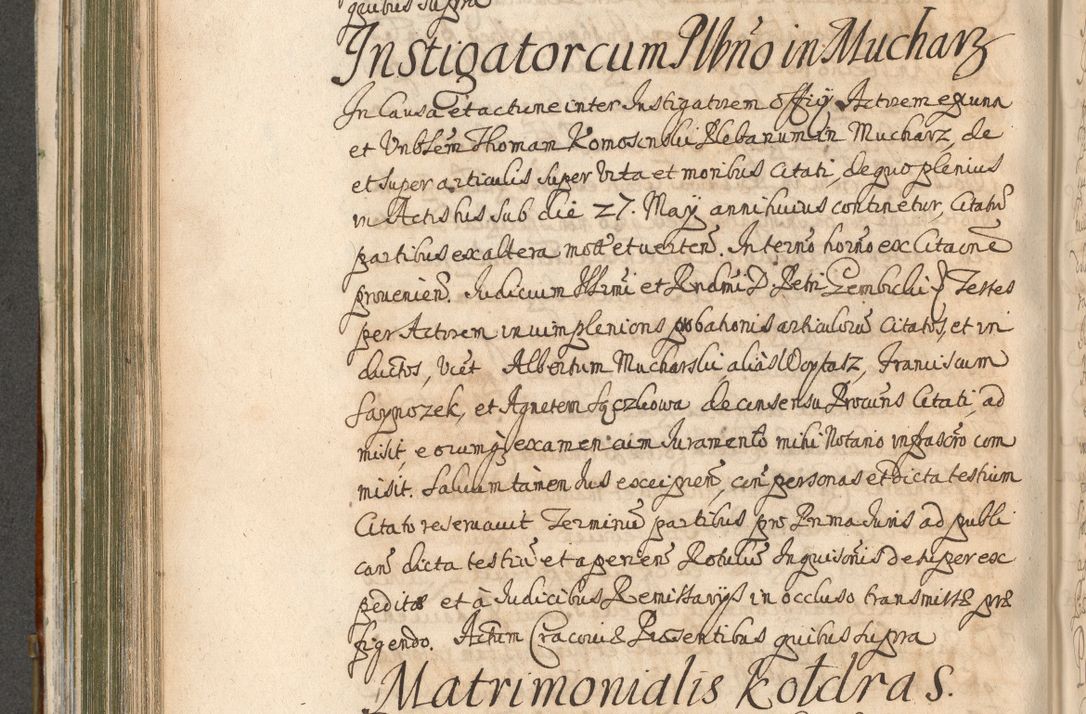 quibus supra
Instigator cum Plbño in Mucharz
In Causa et actione inter Instigatorem Officij Actorem ex una
et Vnblem Thomam Komosinski Plebanum in Mucharz, de
et super articulis super vita et moribus Citati, de quo plenius
in Actis his sub die 27. Maij anni huius continetur, Citatũ
partibus ex altera mott et uerteñ. In termõ horño ex Citaõne
prouenieñ. Judicium Illrmi et Rndmi D. Petri Gembicki Testes
per Actorem in uim plenioris probationis articulorũ Citatos, et in
ductos, vict Albertum Mucharski, alias Woytasz, Franciscum
Saynozek, et Agnetem Sączkowa de consensu Procuris Citati, ad
misit, eorumq examen cum Juramento mihi Notario infrascro com
misit. Saluum tamen Jus excipieñ, coñ personas et dicta testium
Citato reseruauit Terminũ partibus pro Prima Juris ad publi
cañ dicta testiũ et aperieñ Rotulũ Inquisõnis desuper ex
peditæ et à Judicibus Remissarijs in occluso transmissæ præ
figendo. Actum Cracouiæ Præsentibus quibus supra
Matrimonialis Kołdras.